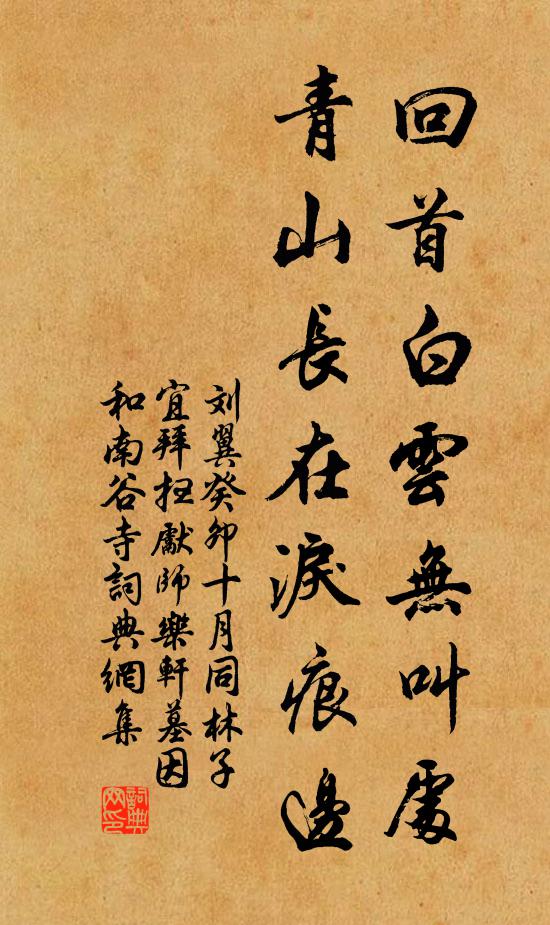 回首白雲無叫處
青山長在淚痕邊
刘翼癸卯十月同林子
宜拜扫獻师樂軒墓因
和南谷寺詞典網集
詞典網印